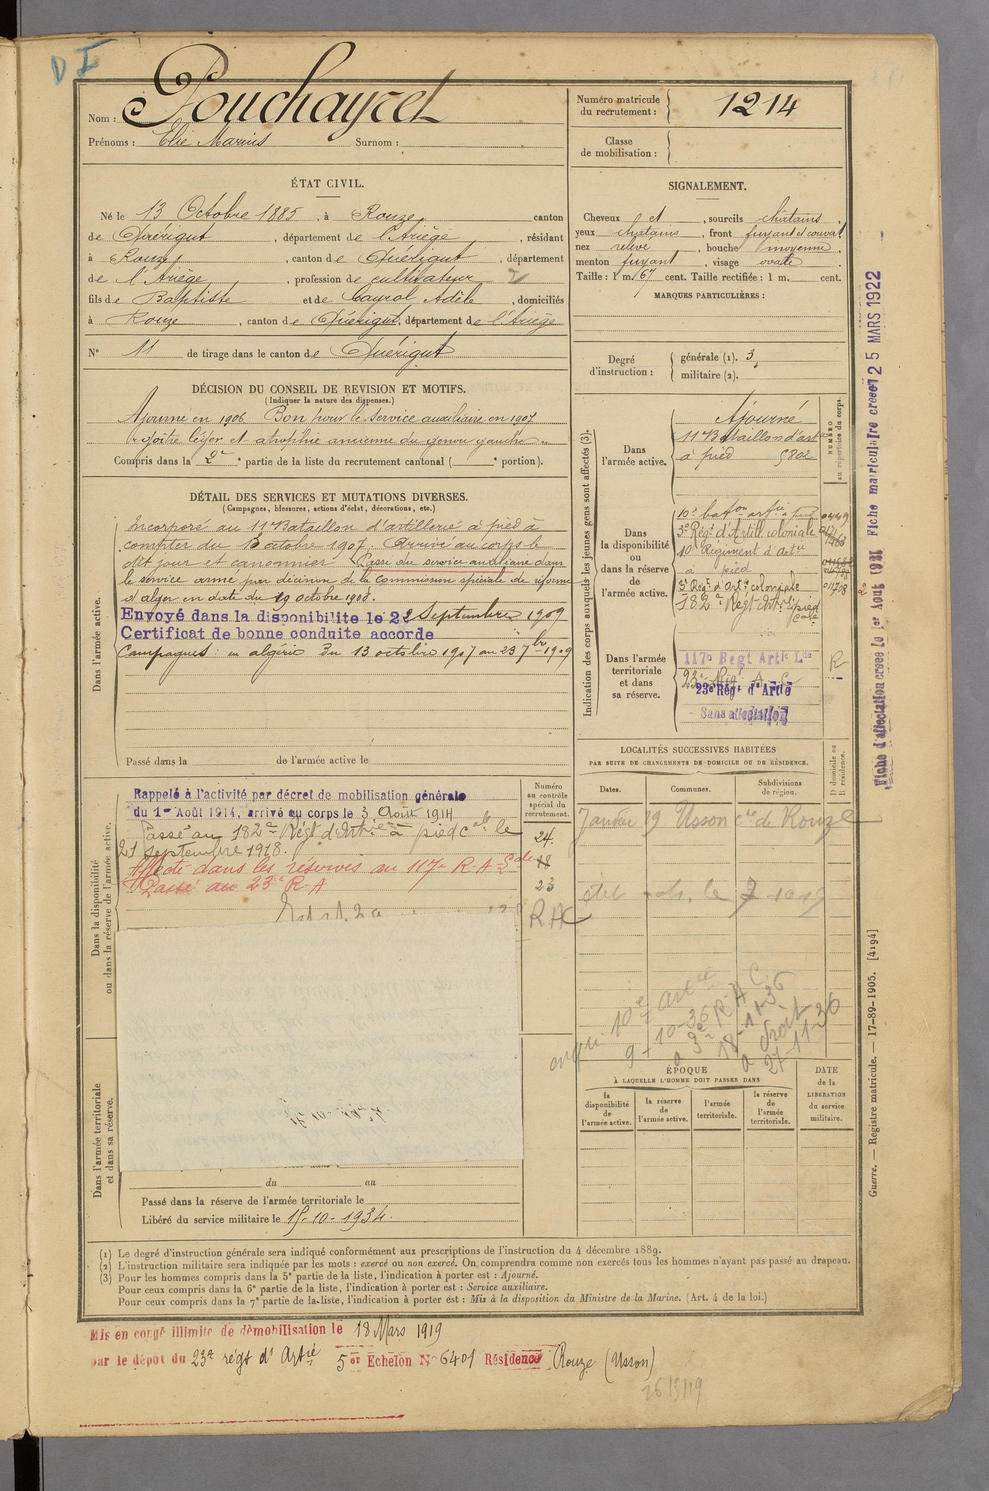 D I
Nom : Pouchayret
Prénoms : Elie Marius Surnom :
Numéro matricule du recrutement : 1214
Classe de mobilisation :
ÉTAT CIVIL.
Né le 13 Octobre 1885, à Rouze, canton
de Quérigut, département de l'Ariège, résidant
à Rouze, canton de Quérigut, département
de l'Ariège, profession de cultivateur
fils de Baptiste et de Cayrol Adèle, domiciliés
à Rouze, canton de Quérigut, département de l'Ariège
N° 11 de tirage dans le canton de Quérigut
SIGNALEMENT.
Cheveux et, sourcils châtains,
yeux châtains, front fuyant et couvert
nez relevé, bouche moyenne
menton fuyant, visage ovale
Taille : 1 m. 67 cent. Taille rectifiée : 1 m. cent.
MARQUES PARTICULIÈRES :
Degré d'instruction : générale (1). 3
militaire (2).
DÉCISION DU CONSEIL DE REVISION ET MOTIFS.
(Indiquer la nature des dispenses.)
Ajourné en 1906 Bon pour le service auxiliaire en 1907
goitre léger et atrophie ancienne du genou gauche
Compris dans la 2e partie de la liste du recrutement cantonal ( e portion).
DÉTAIL DES SERVICES ET MUTATIONS DIVERSES.
(Campagnes, blessures, actions d'éclat, décorations, etc.)
Dans l'armée active.
Incorporé au 11e Bataillon d'artillerie à pied à
compter du octobre 1907. Arrivé au corps le
dit jour et canonnier. Passé du service auxiliaire dans
le service armé par décision de la Commission spéciale de réforme
d'alger en date du 19 octobre 1908.
Envoyé dans la disponibilite le 22 Septembre 1909
Certificat de bonne conduite accorde
Campagnes : en algérie du 13 octobre 1907 au 23 7bre 1909
Passé dans la de l'armée active le
Indication des corps auxquels les jeunes gens sont affectés (3).
NUMÉRO au répertoire du corps.
Dans l'armée active.
Ajourné
11e Bataillon d'art
à pied 5802
Dans la disponibilité ou dans la réserve de l'armée active.
10e baton artie à pied
3e Régt d'Artill. coloniale
10e Régiment d'Artie
à pied
3e Régt d'Artie coloniale
182e Régt Art. à pied
Dans l'armée territoriale et dans sa réserve.
117e Regt Artie Lde
23e Régt A C
23e Régt d'Artie
Sans affectation
R
Fiche d'affectation créée le 1er Août 1921 Fiche matriculaire créée 25 MARS 1922
Dans la disponibilité ou dans la réserve de l'armée active.
Rappelé à l'activité par décret de mobilisation générale
du 1er Août 1914, arrivé au corps le 3 Août 1914
Passé au 182e Régt d'Artie à pied le
21 Septembre 1918.
Affecté dans les réserves au 117e R.A.
Passé au 23e R.A
Numéro au contrôle spécial du recrutement.
24.
18
23
RAC
LOCALITÉS SUCCESSIVES HABITÉES
PAR SUITE DE CHANGEMENTS DE DOMICILE OU DE RÉSIDENCE.
Dates. Communes. Subdivisions de région. D domicile ou R résidence.
Janvier 19 Usson cne de Rouze
10e artie
9-10-36
a 3e R.A.C.
18-11-36
a droit
27-11-36
Dans l'armée territoriale et dans sa réserve.
ÉPOQUE
À LAQUELLE L'HOMME DOIT PASSER DANS
la disponibilité de l'armée active. la réserve de l'armée active. l'armée territoriale. la réserve de l'armée territoriale.
DATE de la LIBÉRATION du service militaire.
du au
Passé dans la réserve de l'armée territoriale le
Libéré du service militaire le 15-10-1934.
(1) Le degré d'instruction générale sera indiqué conformément aux prescriptions de l'instruction du 4 décembre 1889.
(2) L'instruction militaire sera indiquée par les mots : exercé ou non exercé. On comprendra comme non exercés tous les hommes n'ayant pas passé au drapeau.
(3) Pour les hommes compris dans la 5e partie de la liste, l'indication à porter est : Ajourné.
Pour ceux compris dans la 6e partie de la liste, l'indication à porter est : Service auxiliaire.
Pour ceux compris dans la 7e partie de la liste, l'indication à porter est : Mis à la disposition du Ministre de la Marine. (Art. 4 de la loi.)
Guerre. — Registre matricule. — 17-89-1905. [4194]
Mis en congé illimité de démobilisation le 18 Mars 1919
par le dépot du 23e régt d'Artie 5er Echelon N° 6401 Résidence Rouze (Usson)
26/3/19